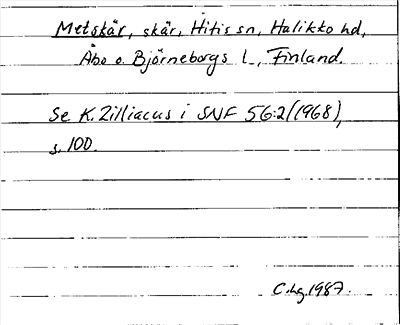 Metskär, skär, Hitis sn, Halikko hd,
Åbo o. Björneborgs l., Finland.
Se K. Zilliacus i SNF 56:2 (1968),
s. 100.
C.Lg. 1987.